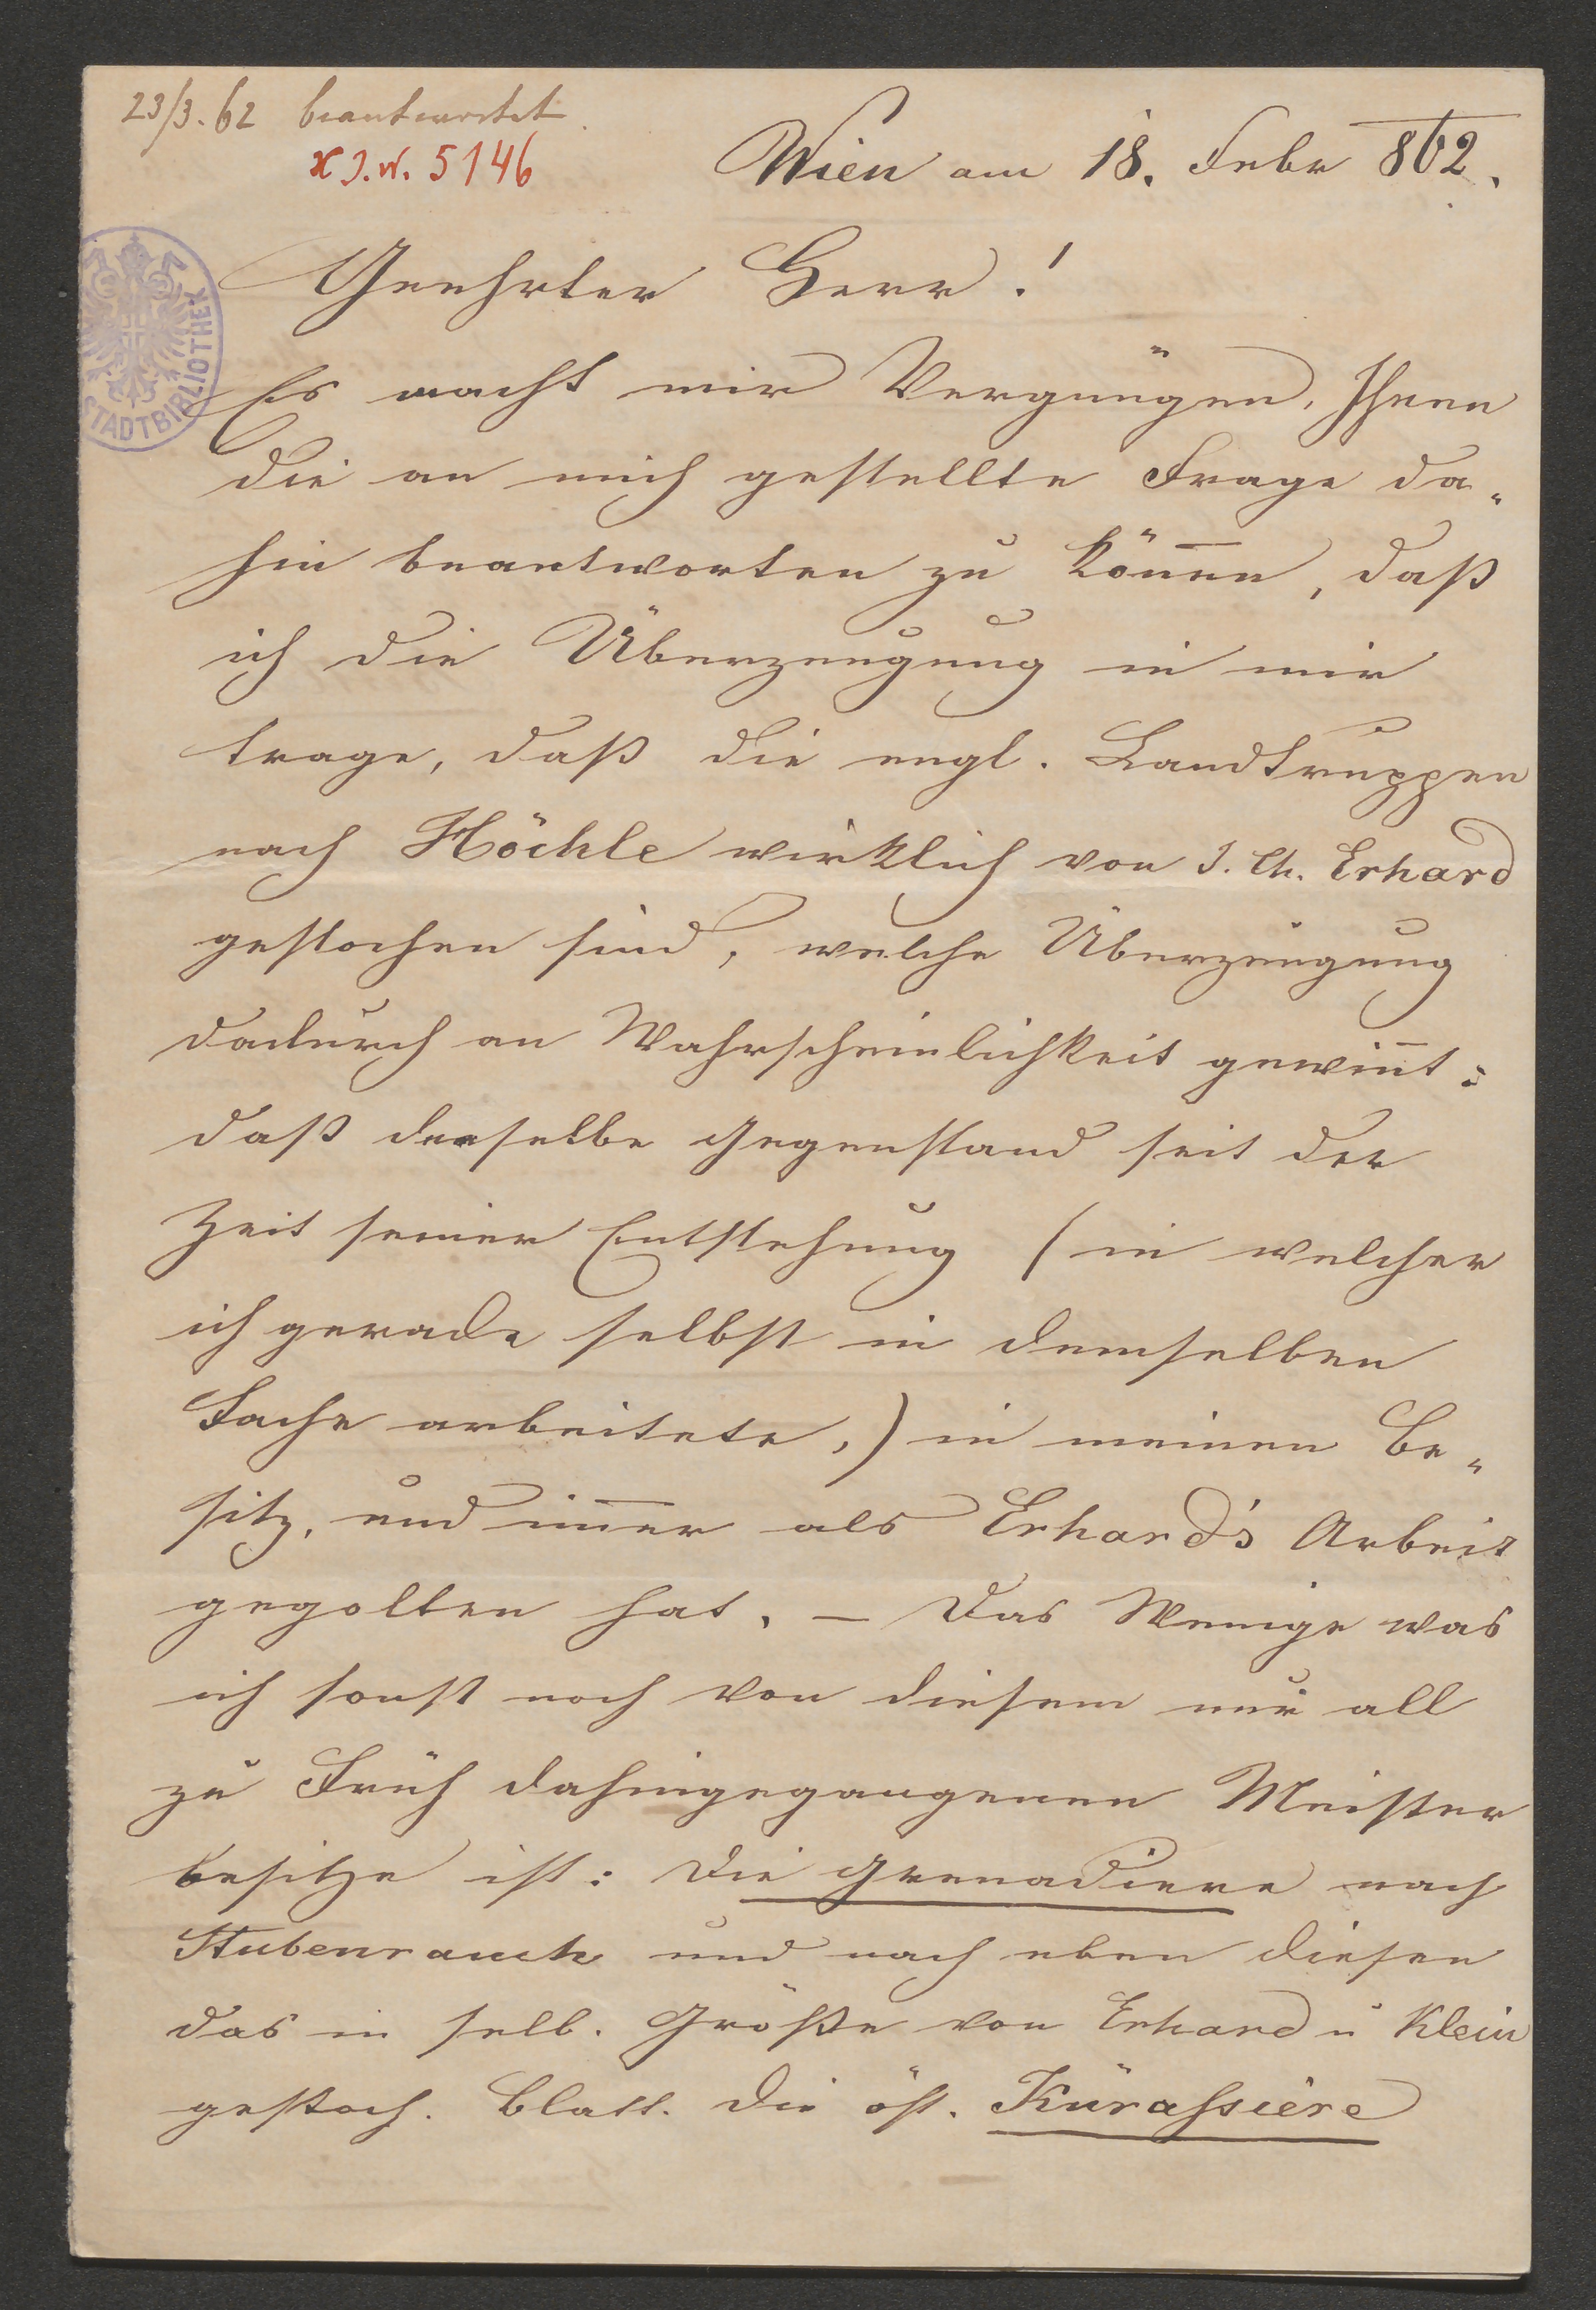 23/3. 62 beantwortet
x J. N. 5146
Wien am 18. Febr 862.
STADTBIBLIOTHEK
Geehrter Herr!
Es macht mir Vergnügen, Ihnen
die an mich gestellte Frage da„
hin beantworten zu kön̄en, daß
ich die Überzeugung in mir
trage, daß die engl. Landtruppen
nach Höchle wirklich von J. Ch. Erhard
gestochen sind, welche Überzeugung
dadurch an Wahrscheinlichkeit gewin̄t:
daß derselbe Gegenstand seit der
Zeit seiner Entstehung (in welcher
ich gerade selbst in demselben
Fache arbeitete,) in meinen Be„
sitz, und im̄er als Erhard's Arbeit
gegolten hat. – Das Wenige was
ich sonst noch von diesem nur all
zu Früh dahingegangenen Meister
besitze ist: die Grenadiere nach
Stubenrauch und nach eben diesen
das in selb. Größe von Erhard u Klein
gestoch. Blatt. die öst. Kürassiere